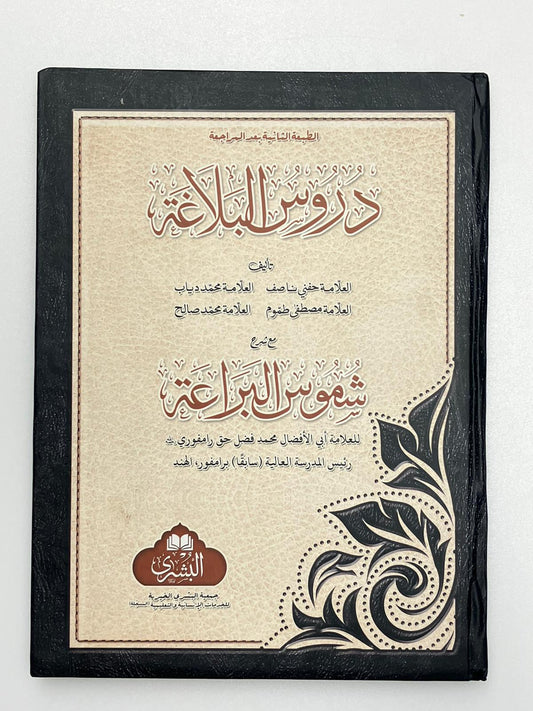 الطبعة الثانية بعد المراجعة
دُرُوسُ البَلَاغَة
تأليف
العلامة حفني ناصف العلامة محمد دياب
العلامة مصطفى طموم العلامة محمد صالح
مع شرح
شُمُوسُ البَرَاعَة
للعلامة أبي الأفضال محمد فضل حق رامفوري
رئيس المدرسة العالية (سابقًا) برامفور، الهند
البُشْرى
جمعية البشرى الخيرية
للخدمات الإنسانية والتعليمية